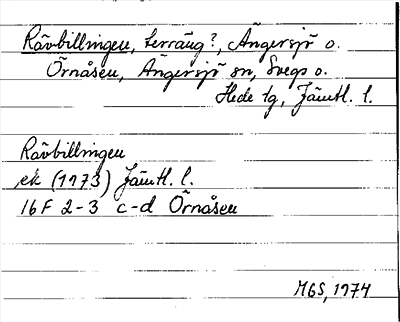 Rävbillingen, terräng?, Ängersjö o.
Örnåsen, Ängersjö sn, Svegs o.
Hede tg, Jämtl. l.
Rävbillingen
ek (1973) Jämtl. l.
16F 2-3 c-d Örnåsen
MGS, 1974